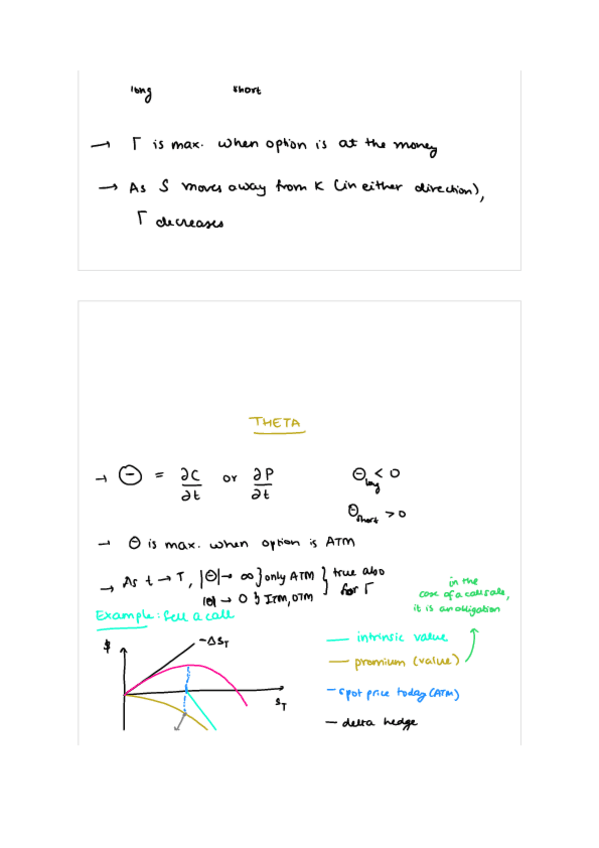 long short
→ Γ is max. when option is at the money
→ As S moves away from K (in either direction),
Γ decreases
THETA
→ Θ = ∂C/∂t or ∂P/∂t Θlong < 0
Θshort > 0
→ Θ is max. when option is ATM
→ As t → T, |Θ| → ∞ } only ATM } true also
|Θ| → 0 } ITM, OTM } for Γ
in the
case of a call sale,
it is an obligation
Example: Sell a call
$
-ΔS_T
S_T
— intrinsic value
— premium (value)
— spot price today (ATM)
— delta hedge